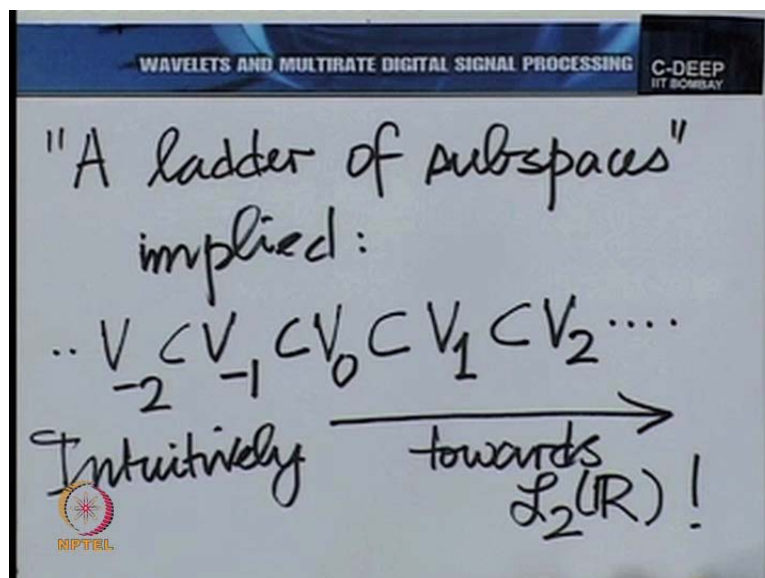 WAVELETS AND MULTIRATE DIGITAL SIGNAL PROCESSING
C-DEEP
IIT BOMBAY
"A ladder of subspaces"
implied:
.. V₋₂ ⊂ V₋₁ ⊂ V₀ ⊂ V₁ ⊂ V₂ ....
Intuitively towards
ℒ₂(ℝ) !
NPTEL